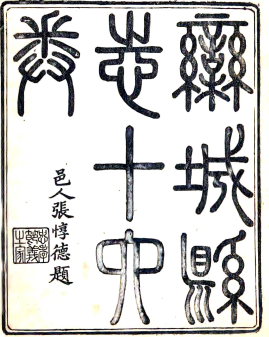 欒城縣
志十
卷
邑人張惇德題